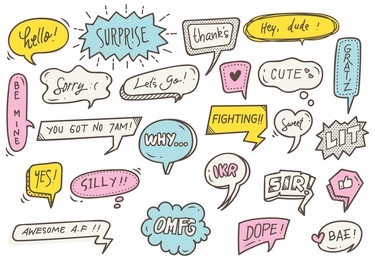 hello!
SURPRISE
thanks
Hey, dude!
GRATZ
BE MINE
Sorry :(
Let's Go!
CUTE
YOU GOT NO JAM!
WHY...
FIGHTING!!
Sweet
LIT
YES!
SILLY!!
IKR
SIR!
AWESOME A.F!!
OMFG
DOPE!
BAE!